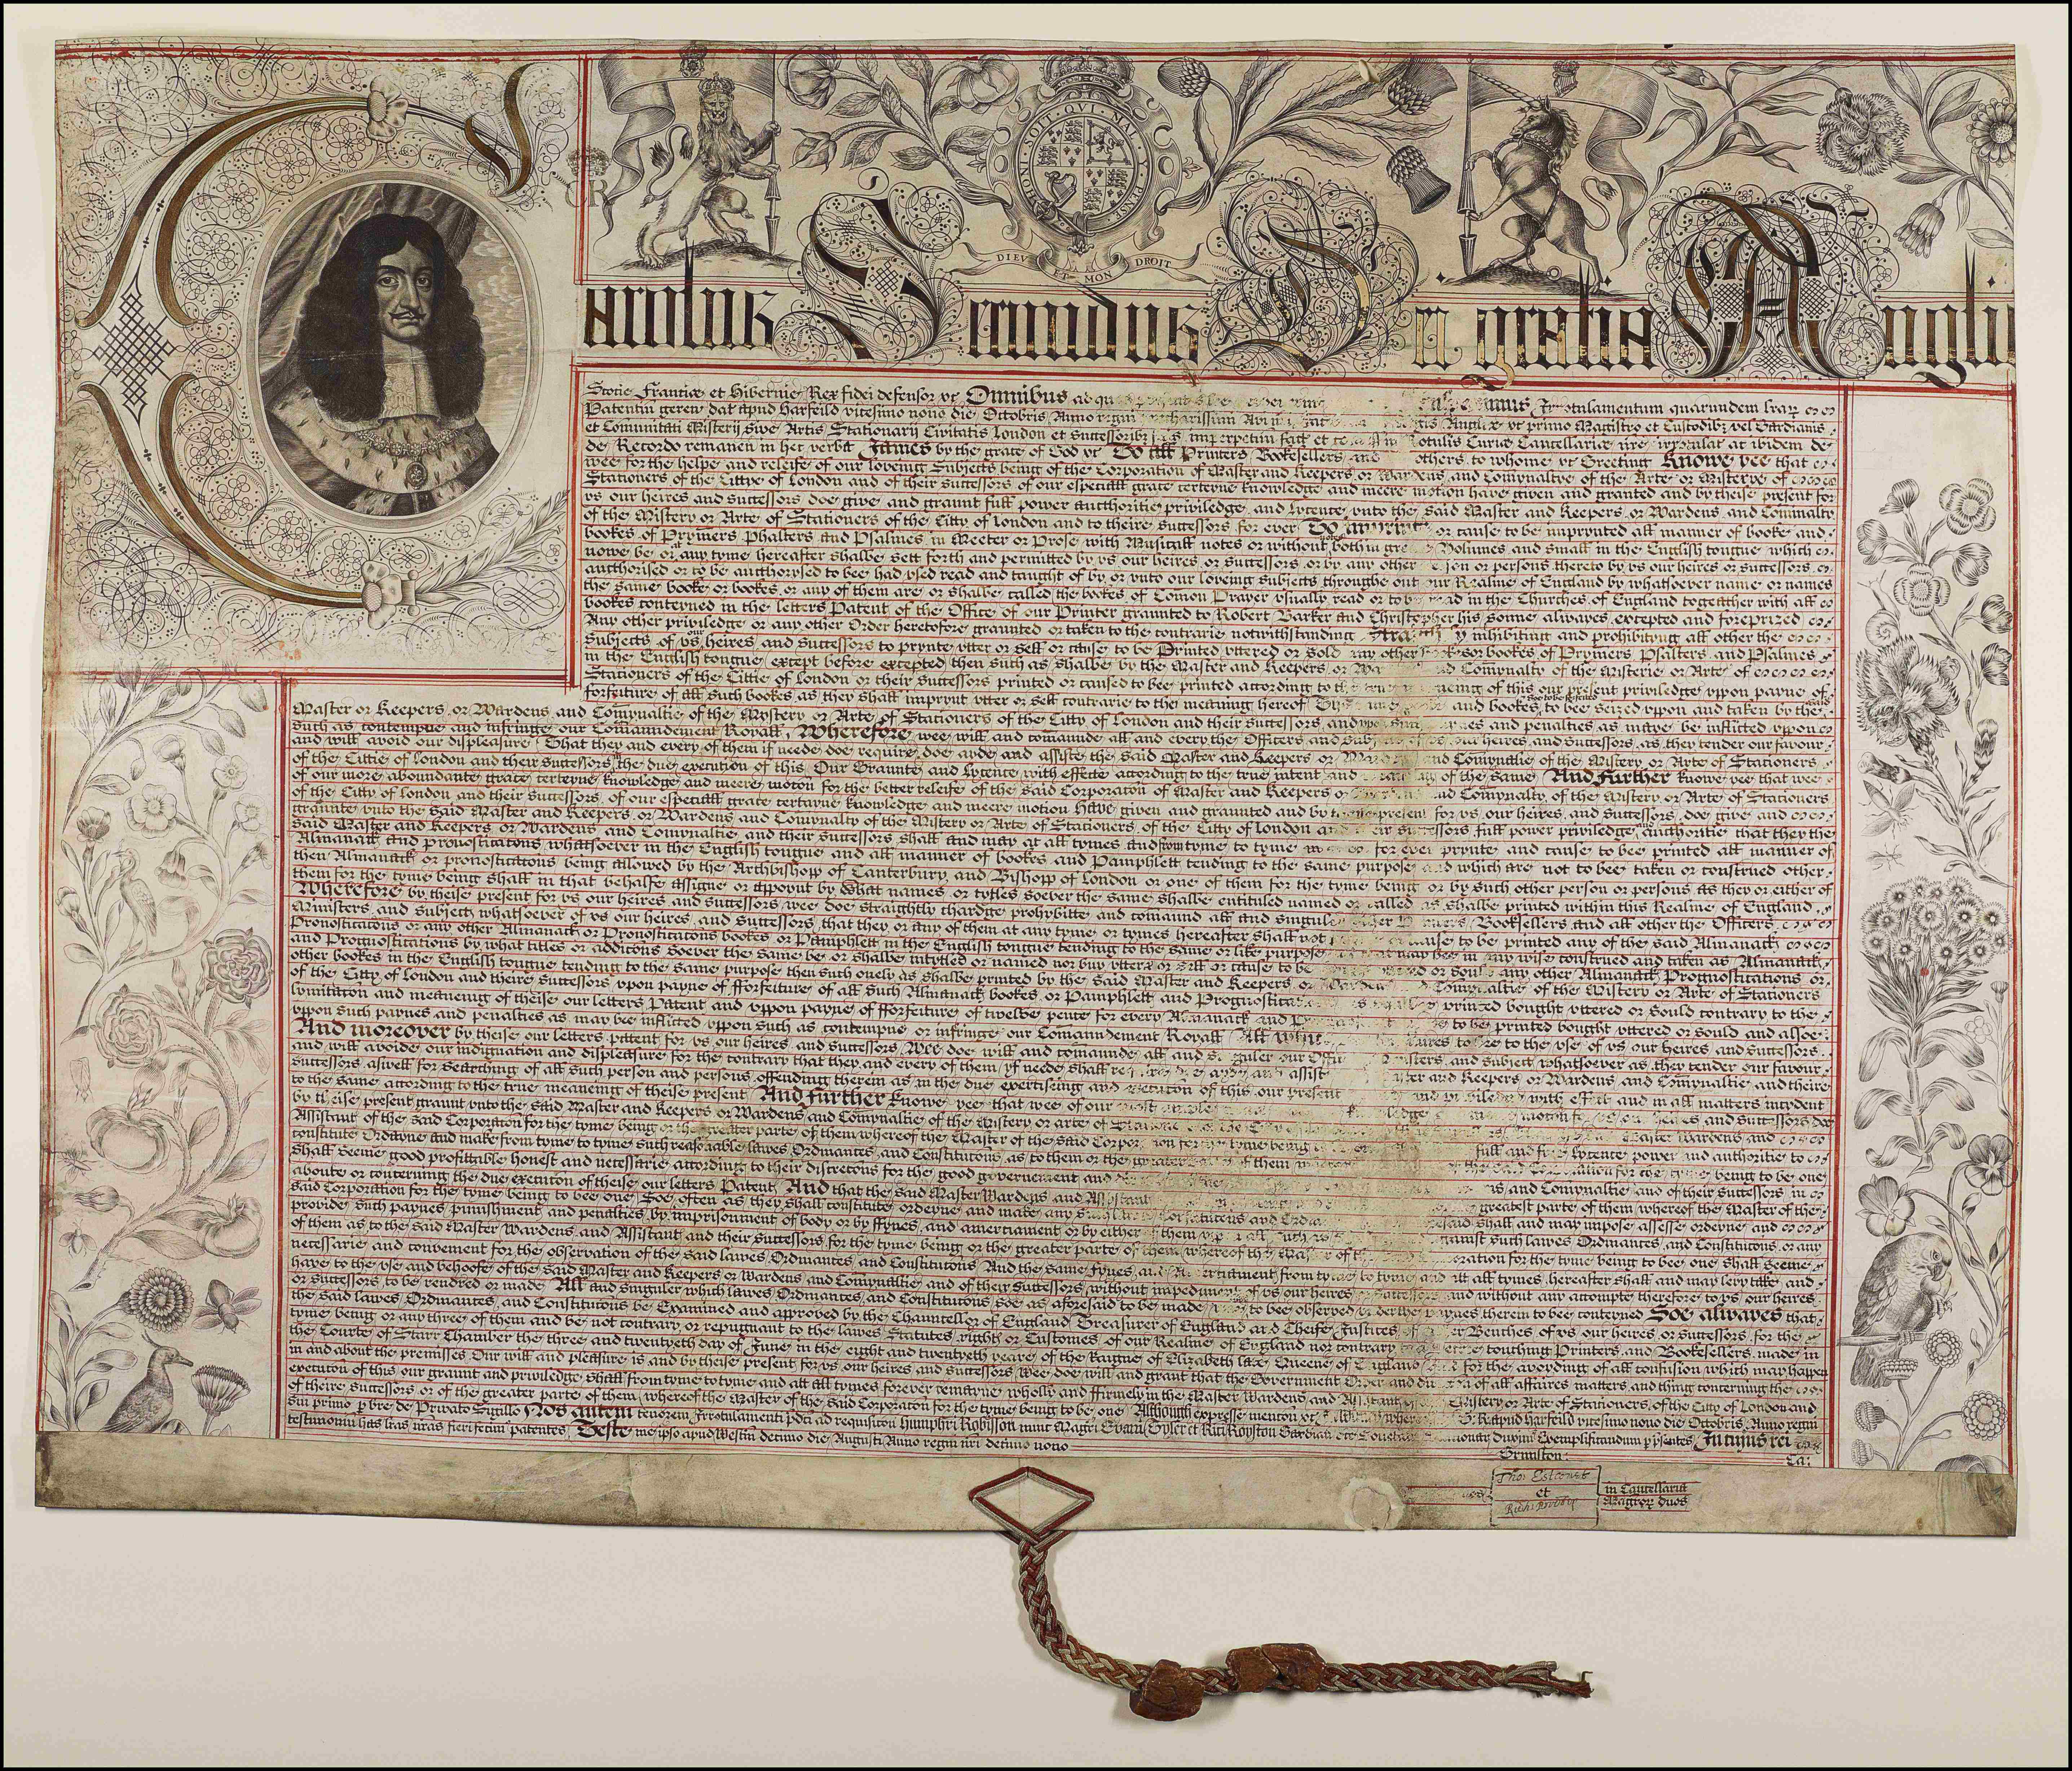 HONI · SOIT · QVI · MAL · Y · PENSE
DIEV ET MON DROIT
CR
Carolus Secundus Dei gratia Angli
Scotie Franciæ et Hibernie Rex fidei defensor &c Omnibus ad quos Inspeximus Irrotulamentum quarundem
Patentiu geren dat apud Harfeild vicesimo nono die Octobris Anno regni Angliæ &c primo Magistro et Custodibz vel Gardianis
et Comunitati Misterij sive Artis Stationarij Civitatis London et Successoribz imperpetuu fact et Rotulis Curiæ Cancellariæ nre irrotulat ac ibidem de
de Recordo remanen in hec verba James by the grace of God &c To all Printers Booksellers and others to whome &c Greeting Knowe yee that
wee for the helpe and releife of our loveing Subjects being of the Corporation of Master and Keepers or Wardens and Comynaltye of the Arte or Misterye of
Stationers of the Cittye of London and of their Successors of our especiall grace certeyne knowledge and meere motion have given and granted and by theise present for
vs our heires and Successors doe give and graunt full power authoritie priviledge and lycence vnto the said Master and Keepers or Wardens and Comynalty
of the Mistery or Arte of Stationers of the Citty of London and to theire Successors for ever To imprint or cause to be imprynted all manner of booke and
bookes of Prymers Phalters and Psalmes in Meeter or Prose with Musicall notes or without notes both in great Volumes and small in the English tongue which
nowe be or at any tyme hereafter shalbe sett forth and permitted by vs our heires or successors or by any other person or persons thereto by vs our heires or successors
authorised or to be authorysed to bee had vsed read and taught of by or vnto our loveing Subjects throughe out our Realme of England by whatsoever name or names
the same booke or bookes or any of them are or shalbe called the bookes of Comon Prayer vsually read or to be read in the Churches of England togeather with all
bookes conteyned in the letters Patent of the Office of our Printer graunted to Robert Barker and Christopher his sonne alwayes excepted and foreprized
Any other priviledge or any other Order heretofore graunted or taken to the contrarie notwithstanding inhibiting and prohibiting all other the
Subjects of vs our heires and Successors to prynte vtter or sell or cause to be Printed vttered or sold any other bookes of Prymers Psalters and Psalmes
in the English tongue except before excepted then such as shalbe by the Master and Keepers or Wardens and Comynalty of the Misterie or Arte of
Stationers of the Cittie of London or their Successors printed or caused to bee printed according to the true meaneing of this our present priviledge vppon payne of
forfeiture of all such bookes as they shall imprynt vtter or sell contrarie to the meaning hereof and bookes to be seized vppon and taken by the said
Master or Keepers or Wardens and Comynaltie of the Mystery or Arte of Stationers of the Citty of London and their Successors and and penalties as maye be inflicted vppon
such as contempne and infringe our Comaundement Royall Wherefore wee will and comaunde all and every the Officers and our heires and Successors as they tender our favour
and will avoid our displeasure That they and every of them if neede doe require doe ayde and assiste the said Master and Keepers or Wardens and Comynaltie of the Mistery or Arte of Stationers
of the Cittie of London and their Successors the due execution of this Our Graunte and Lycence with effecte according to the true intent and meaning of the same And further knowe yee that wee
of our more aboundante grace certeyne knowledge and meere motion for the better releife of the said Corporation of Master and Keepers or and Comynalty of the Mistery or Arte of Stationers
of the Citty of London and their Successors of our especiall grace certayne knowledge and meere motion Have given and graunted and by theise present for vs our heires and Successors doe give and
graunte vnto the said Master and Keepers or Wardens and Comynalty of the Mistery or Arte of Stationers of the Citty of London and their Successors full power priviledge and authoritie that they the
said Master and Keepers or Wardens and Comynaltie and their Successors shall and may at all tymes and from tyme to tyme for ever prynte and cause to bee printed all manner of
Almanack and pronosticatons whatsoever in the English tongue and all manner of bookes and Pamphlett tending to the same purpose and which are not to bee taken or construed other
then Almanack or pronosticatons being allowed by the Archbishopp of Canterbury and Bishopp of London or one of them for the tyme being or by such other person or persons as they or either of
them for the tyme being shall in that behalfe assigne or appoynt by what names or tytles soever the same shalbe entituled named or called as shalbe printed within this Realme of England
Wherefore by theise present for vs our heires and Successors wee doe straightly chardge prohybitte and comaund all and singuler other Printers Booksellers and all other the Officers
Ministers and subject whatsoever of vs our heires and Successors that they or any of them at any tyme or tymes hereafter shall not cause to be printed any of the said Almanack
Pronosticatons or any other Almanack or Pronosticatons bookes or Pamphlett in the English tongue tending to the same or like purpose may bee in any wise construed and taken as Almanack
and Prognostications by what titles or additions soever the same be or shalbe intytled or named nor buy vtter or sell or cause to be or sould any other Almanack Prognostications or
other bookes in the English tongue tending to the same purpose then such onely as shalbe printed by the said Master and Keepers or Wardens Comynaltie of the Mistery or Arte of Stationers
of the Citty of London and theire Successors vpon payne of fforfeiture of all such Almanack bookes or Pamphlett and Prognosticatons printed bought vttered or sould contrary to the
lymitaton and meaneing of theise our letters Patent and vppon payne of fforfeiture of twelve pence for every Almanack and to be printed bought vttered or sould and alsoe
vppon such paynes and penalties as may bee inflicted vppon such as contempne or infringe our Comandement Royall All which to the vse of vs our heires and Successors
And moreover by theise our letters patent for vs our heires and Successors Wee doe will and comaunde all and singuler our Officers Ministers and subject whatsoever as they tender our favour
and will avoide our indignation and displeasure for the contrary that they and every of them yf neede shall require and assist Master and Keepers or Wardens and Comynaltie and theire
Successors aswell for searching of all such person and persons offending therein as in the due exerciseing and execution of this our present and priviledge with effect and in all matters incydent
to the same according to the true meaneing of theise present And further knowe yee that wee of our knowledge and motion for and Successors doe
by theise present graunt vnto the said Master and Keepers or Wardens and Comynaltie of the Mistery or arte of Master Wardens and
Assistant of the said Corporaton for the tyme being or the greater parte of them whereof the Master of the said Corporation for the tyme being full and free lycence power and authoritie to
constitute Ordayne and make from tyme to tyme such reasonable lawes Ordinances and Constitutons as to them or the greater of them for the tyme being to be one
shall seeme good profittable honest and necessarie according to their discretons for the good governement and and Comynaltie and of their Successors in
aboute or concerning the due executon of theise our letters Patent And that the said Master Wardens and Assistant greatest parte of them whereof the Master of the
said Corporation for the tyme being to bee one Soe often as they shall constitute ordeyne and make any shall and may impose assesse ordeyne and
provide such paynes punishment and penalties by imprisonment of body or by ffynes and amerciament or by either of them against such lawes Ordinances and Constitutons or any
of them as to the said Master Wardens and Assistant and their Successors for the tyme being or the greater parte of them whereof the Master of the Corporation for the tyme being to bee one shall seeme
necessarie and convenient for the observation of the said lawes Ordinances and Constitutons And the same fynes and Amerciament from tyme to tyme and att all tymes hereafter shall and may levy take and
have to the vse and behoofe of the said Master and Keepers or Wardens and Comynaltie and of their Successors without impediment of vs our heires or Successors and without any accompte therefore to vs our heires
or Successors to be rendred or made All and singuler which lawes Ordinances and Constitutons soe as aforesaid to be made to bee observed vnder the paynes therein to bee conteyned Soe alwayes that
the said lawes Ordinances and Constitutons be Examined and approved by the Chauncellor of England Treasurer of England and Cheife Justices of Benches of vs our heires or successors for the
tyme being or any three of them and be not contrary or repugnant to the lawes Statutes right or Customes of our Realme of England nor contrary touching Printers and Booksellers made in
the Courte of Starr Chamber the three and twentyeth day of June in the eight and twentyeth yeare of the Raigne of Elizabeth late Queene of England for the avoyding of all confusion which may happen
in and about the premisses Our will and pleasure is and by theise present for vs our heires and Successors wee doe will and grant that the Government Order and of all affaires matters and thing concerning the
executon of this our graunt and priviledge shall from tyme to tyme and att all tymes forever remayne wholly and ffirmely in the Master Wardens and Assistant Mistery or Arte of Stationers of the Citty of London and
of theire Successors or of the greater parte of them whereof the Master of the said Corporaton for the tyme being to be one Although expresse menton &c R apud Harfeild vicesimo nono die Octobris Anno regni
sui primo p bre de Privato Sigillo Nos autem tenorem Irrotulamenti pdci ad requisicon Humphri Robisson nunc Magri Evani Tyler et Rici Royston Gardian duximu Exemplificandum p psentes In cujus rei
testimonium has lras nras fieri fecim patentes Teste me ipso apud Westm decimo die Augusti Anno regni nri decimo nono
Grimston
Tho: Estcourt
et
in Cancellaria
Magror duos